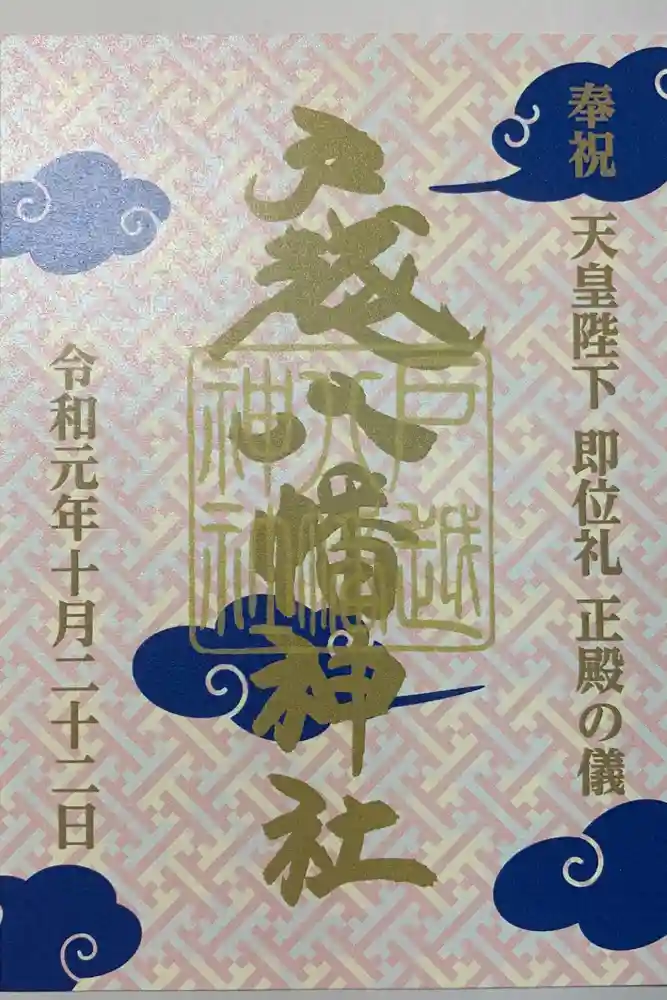 奉祝 天皇陛下 即位礼 正殿の儀
戸越八幡神社
戸越
八幡
神社
令和元年十月二十二日